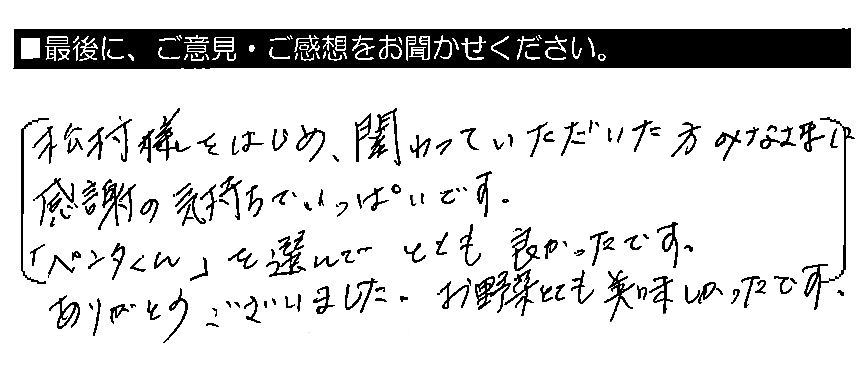 ■最後に、ご意見・ご感想をお聞かせください。
松村様をはじめ、関わっていただいた方みなさまに
感謝の気持ちでいっぱいです。
「ペンタくん」を選んでとても良かったです。
ありがとうございました。お野菜とても美味しかったです。